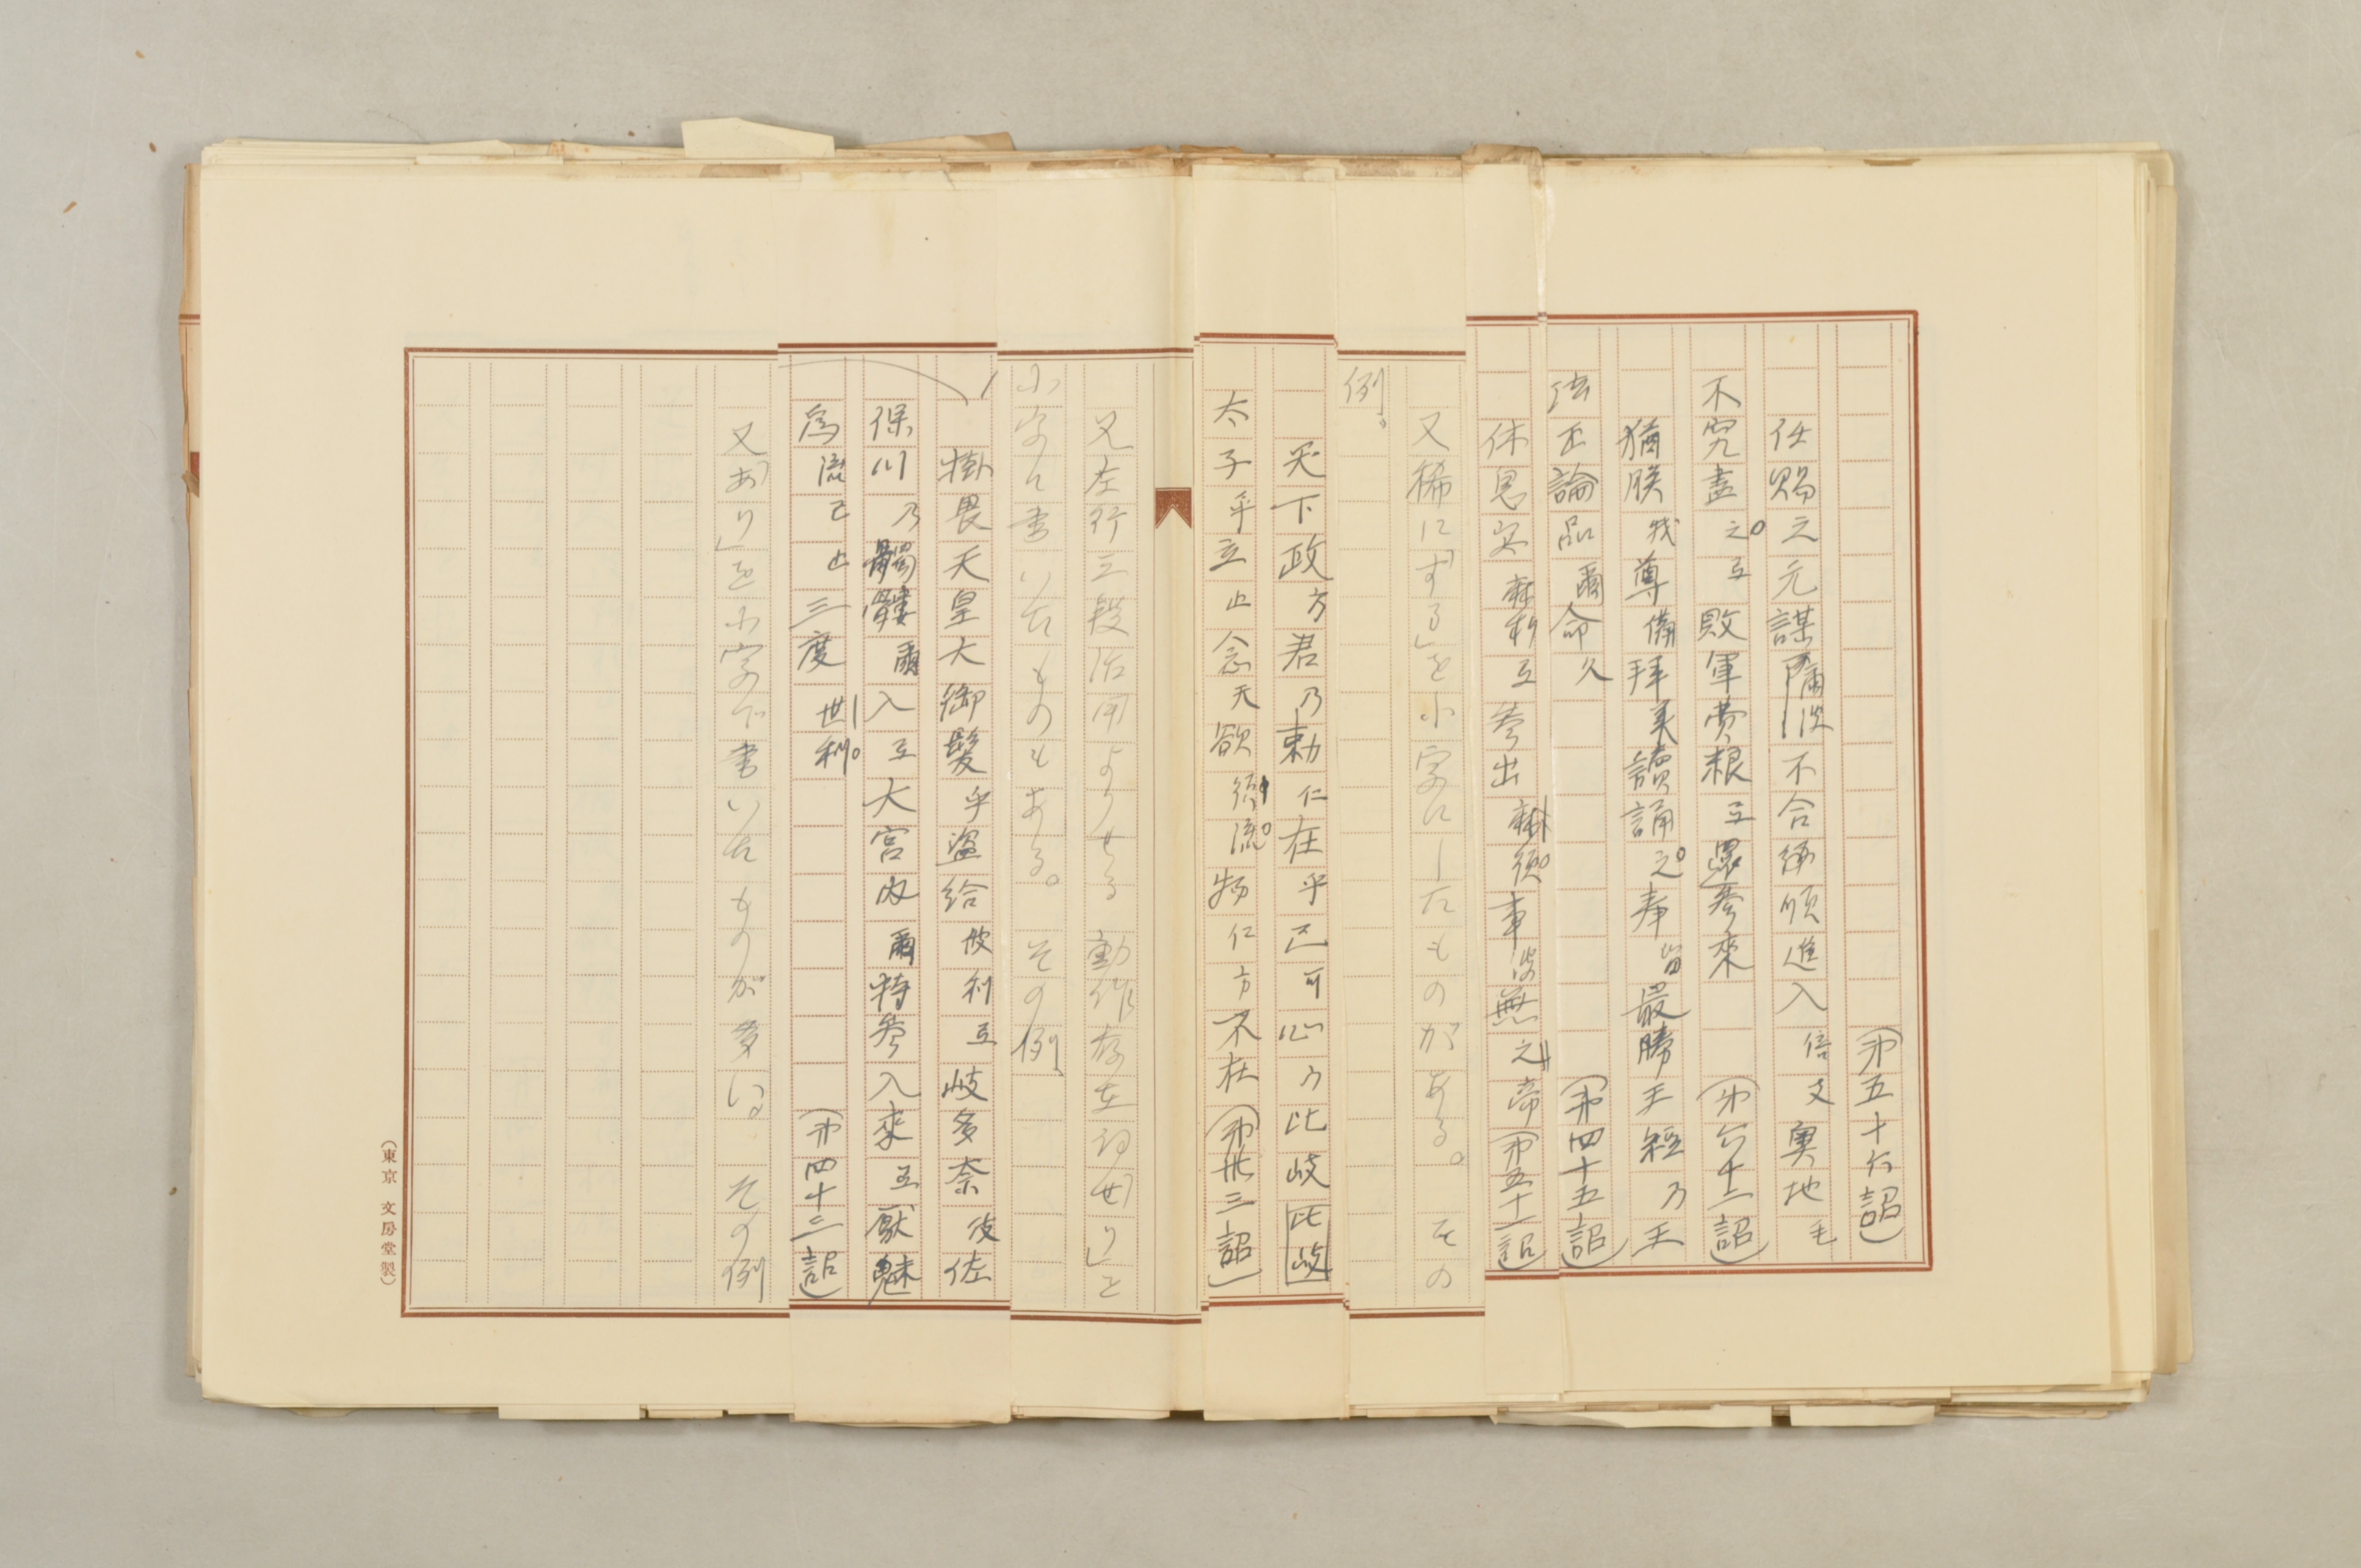 (第五十六詔)
任賜之元謀 不合 進入 奧地毛
不究盡之弖 敗軍 粮弖 還參來 (第六十二詔)
猶朕我尊備拜美讀誦之奉 最勝王經乃王
法正論品爾命久 (第四十五詔)
休息安麻利弖參出麻須事波無之帝 (第五十一詔)
又稀に「する」を小字にしたものがある。その
例。
天下政方君乃勅仁在乎己可心乃比岐比岐
太子乎立止念天欲須流物仁方不在 (第卅三詔)
又左行三段活用よりせる動作存在詞「せり」を
小字に書いたものもある。その例、
掛畏天皇大御髮乎盜給波利弖岐多奈伎佐
保川乃髑髏爾入弖大宮內爾持參入來弖厭魅
爲流己止三度世利。 (第四十三詔)
又「あり」を小字で書いたものが多い。その例
(東京 文房堂製)